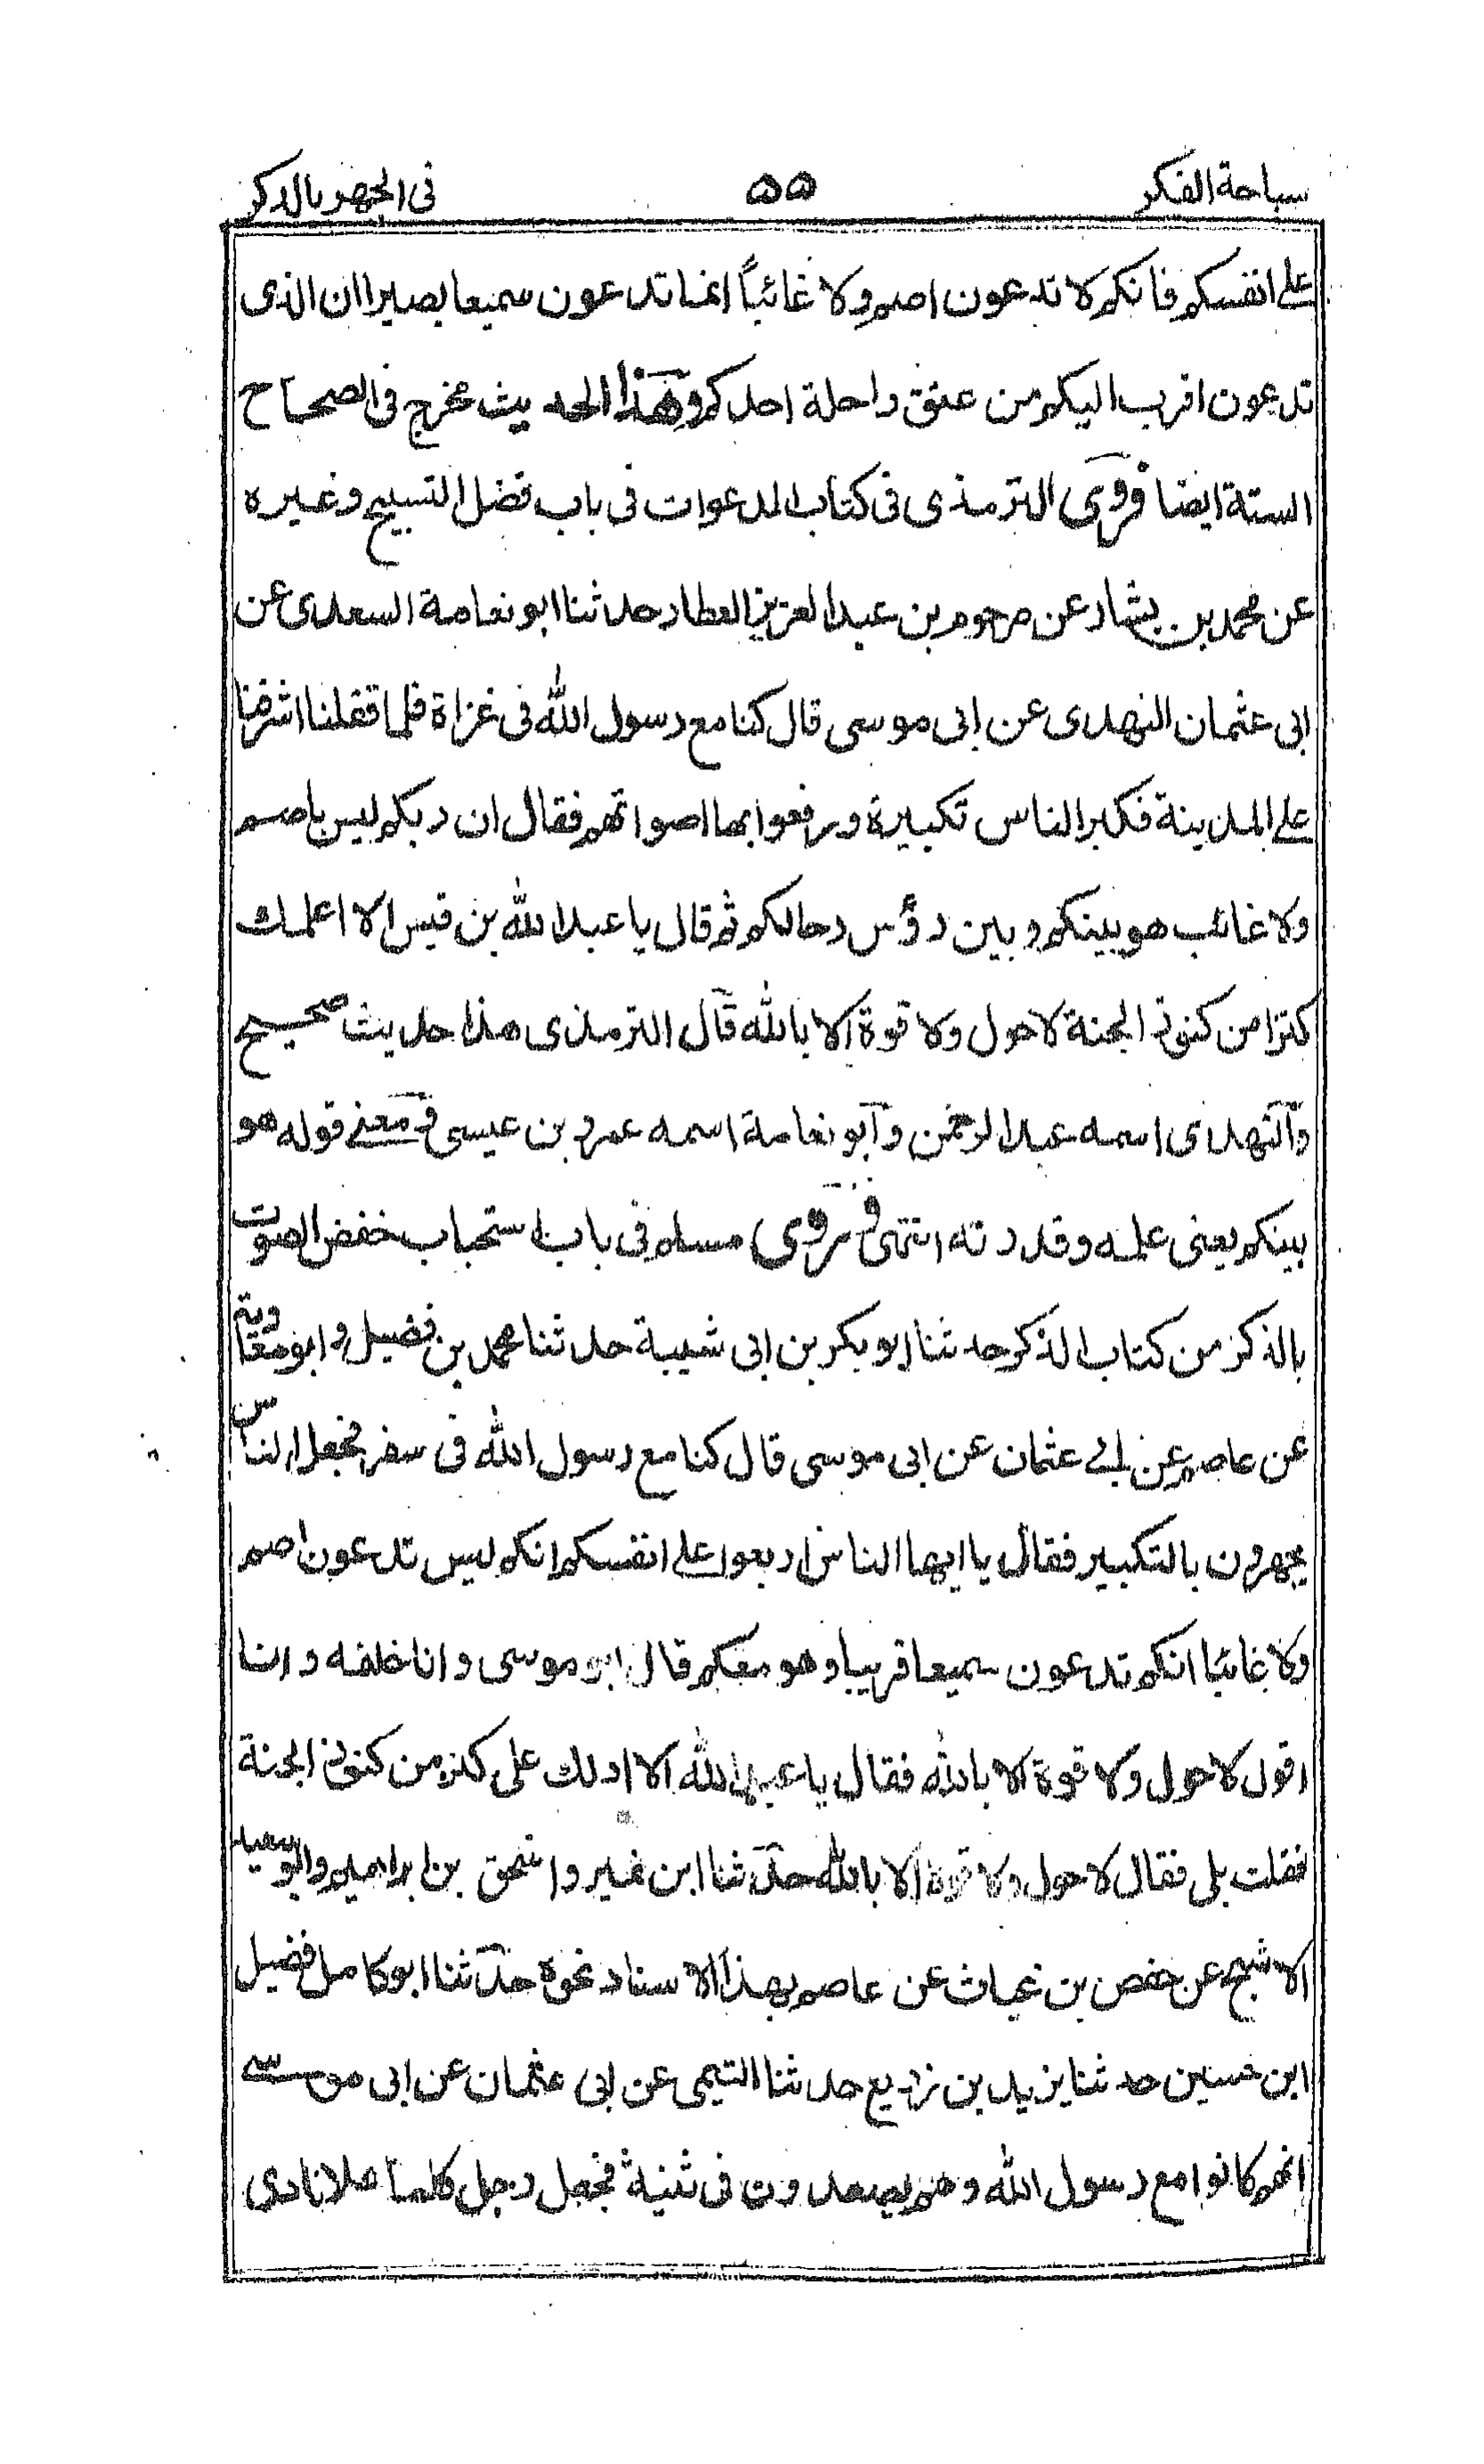 سباحة الفكر ۵۵ فى الجهر بالذكر
على انفسكم فانكم لا تدعون اصم ولا غائبًا انما تدعون سميعا بصيرا ان الذى
تدعون اقرب اليكم من عنق راحلة احدكم وهذا الحديث مخرج فى الصحاح
الستة ايضا فروى الترمذى فى كتاب الدعوات فى باب فضل التسبيح وغيره
عن محمد بن بشار عن مرحوم بن عبد العزيز العطار حدثنا ابو نعامة السعدى عن
ابى عثمان النهدى عن ابى موسى قال كنا مع رسول الله فى غزاة فلما قفلنا اشرفنا
على المدينة فكبر الناس تكبيرة ورفعوا بها اصواتهم فقال ان ربكم ليس باصم
ولا غائب هو بينكم وبين رؤس رحالكم ثم قال يا عبد الله بن قيس الا اعلمك
كنزا من كنوز الجنة لا حول ولا قوة الا بالله قال الترمذى هذا حديث صحيح
والنهدى اسمه عبد الرحمن وابو نعامة اسمه عمرو بن عيسى ومعنى قوله هو
بينكم يعنى علمه وقدرته انتهى وروى مسلم فى باب استحباب خفض الصوت
بالذكر من كتاب الذكر حدثنا ابو بكر بن ابى شيبة حدثنا محمد بن فضيل وابو معاوية
عن عاصم عن ابى عثمان عن ابى موسى قال كنا مع رسول الله فى سفر فجعل الناس
يجهرون بالتكبير فقال يا ايها الناس اربعوا على انفسكم انكم ليس تدعون اصم
ولا غائبا انكم تدعون سميعا قريبا وهو معكم قال ابو موسى وانا خلفه وانا
اقول لا حول ولا قوة الا بالله فقال يا عبد الله الا ادلك على كنز من كنوز الجنة
فقلت بلى فقال لا حول ولا قوة الا بالله حدثنا ابن نمير واسحق بن ابراهيم وابو سعيد
الاشج عن حفص بن غياث عن عاصم بهذا الاسناد نحوه حدثنا ابو كامل فضيل
ابن حسين حدثنا يزيد بن زريع حدثنا التيمى عن ابى عثمان عن ابى موسى
انهم كانوا مع رسول الله وهم يصعدون فى ثنية فجعل رجل كلما علا نادى